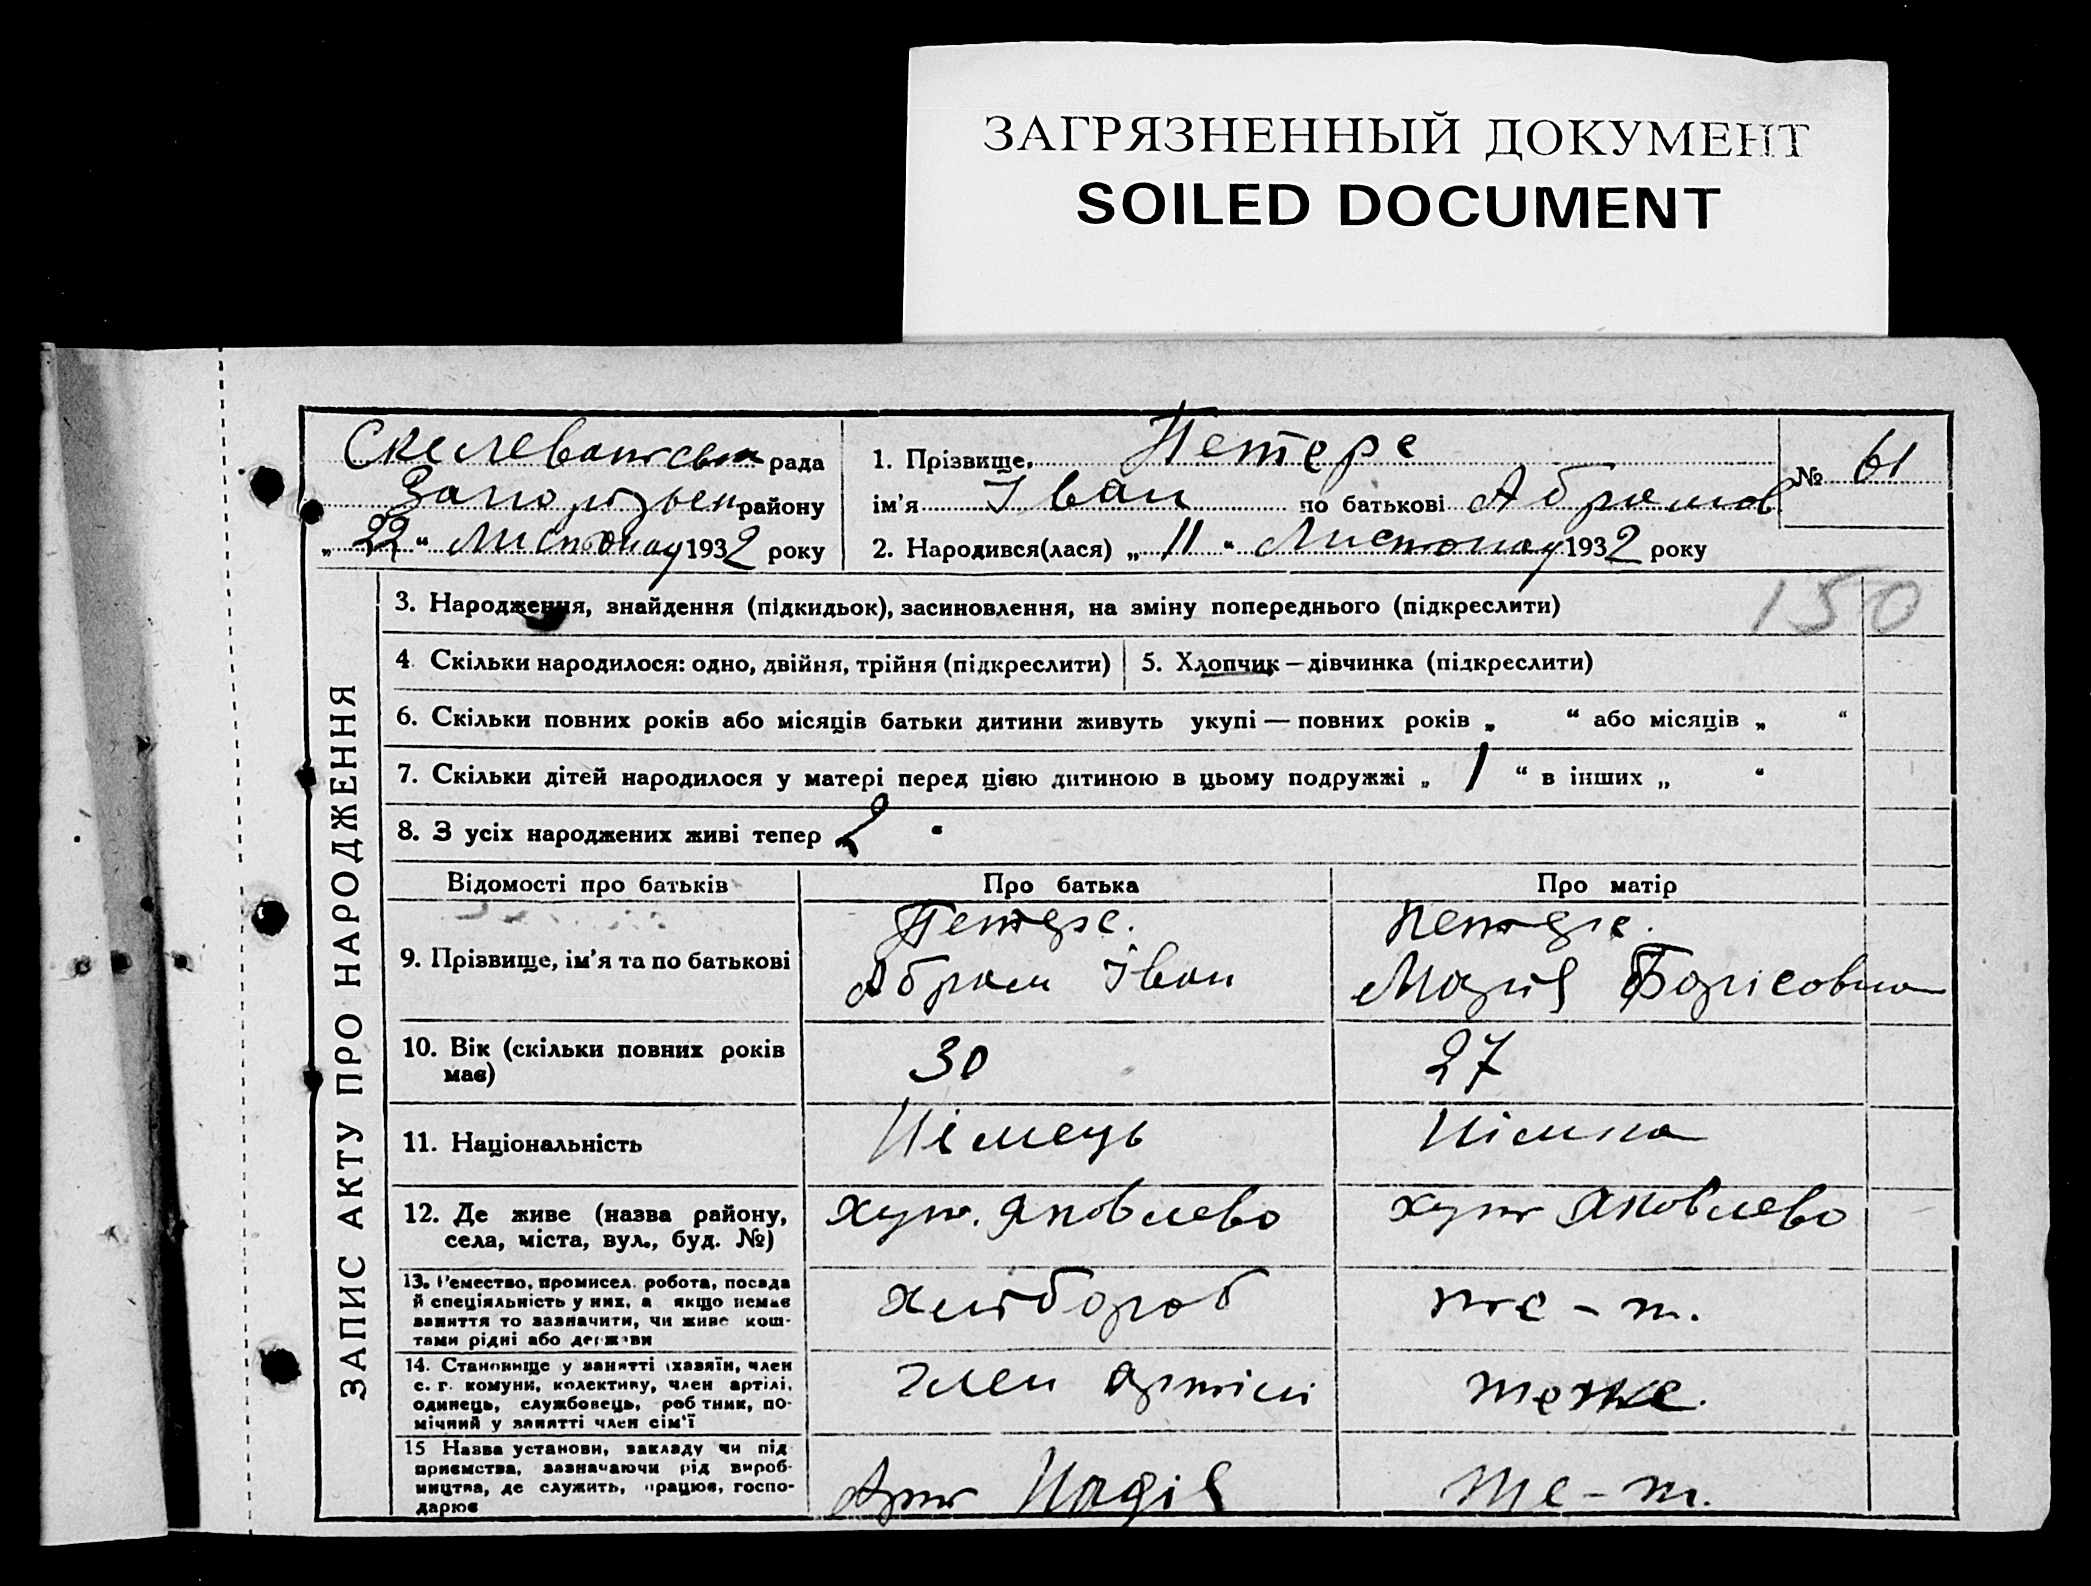 ЗАГРЯЗНЕННЫЙ ДОКУМЕНТ
SOILED DOCUMENT
рада
району
„ 22 “ Листопад 1932 року
1. Прізвище, Петерс
ім’я Іван по батькові Абрамов
2. Народився(лася) „ 11 “ Листопад 1932 року
№ 61
150
ЗАПИС АКТУ ПРО НАРОДЖЕННЯ
3. Народження, знайдення (підкидьок), засиновлення, на зміну попереднього (підкреслити)
4. Скільки народилося: одно, двійня, трійня (підкреслити)
5. Хлопчик — дівчинка (підкреслити)
6. Скільки повних років або місяців батьки дитини живуть укупі — повних років „ “ або місяців „ “
7. Скільки дітей народилося у матері перед цією дитиною в цьому подружжі „ 1 “ в інших „ “
8. З усіх народжених живі тепер 2 “
Відомості про батьків
Про батька
Про матір
9. Прізвище, ім’я та по батькові
Петерс.
Абрам Іван
Петерс.
Марія Борісовна
10. Вік (скільки повних років має)
30
27
11. Національність
Німець
Німка
12. Де живе (назва району, села, міста, вул., буд. №)
хут. Яковлево
хут Яковлево
13. Ремество, промисел, робота, посада й спеціяльність у них, а якщо немає заняття то зазначити, чи живе коштами рідні або держави
хлібороб
те - ж.
14. Становище у занятті (хазяїн, член с. г. комуни, колективу, член артілі, одинець, службовець, робтник, помічний у занятті член сім’ї
член артілі
тоже.
15 Назва установи, закладу чи підприємства, зазначаючи рід виробництва, де служить, працює, господарює
Арт Надія
те - ж.